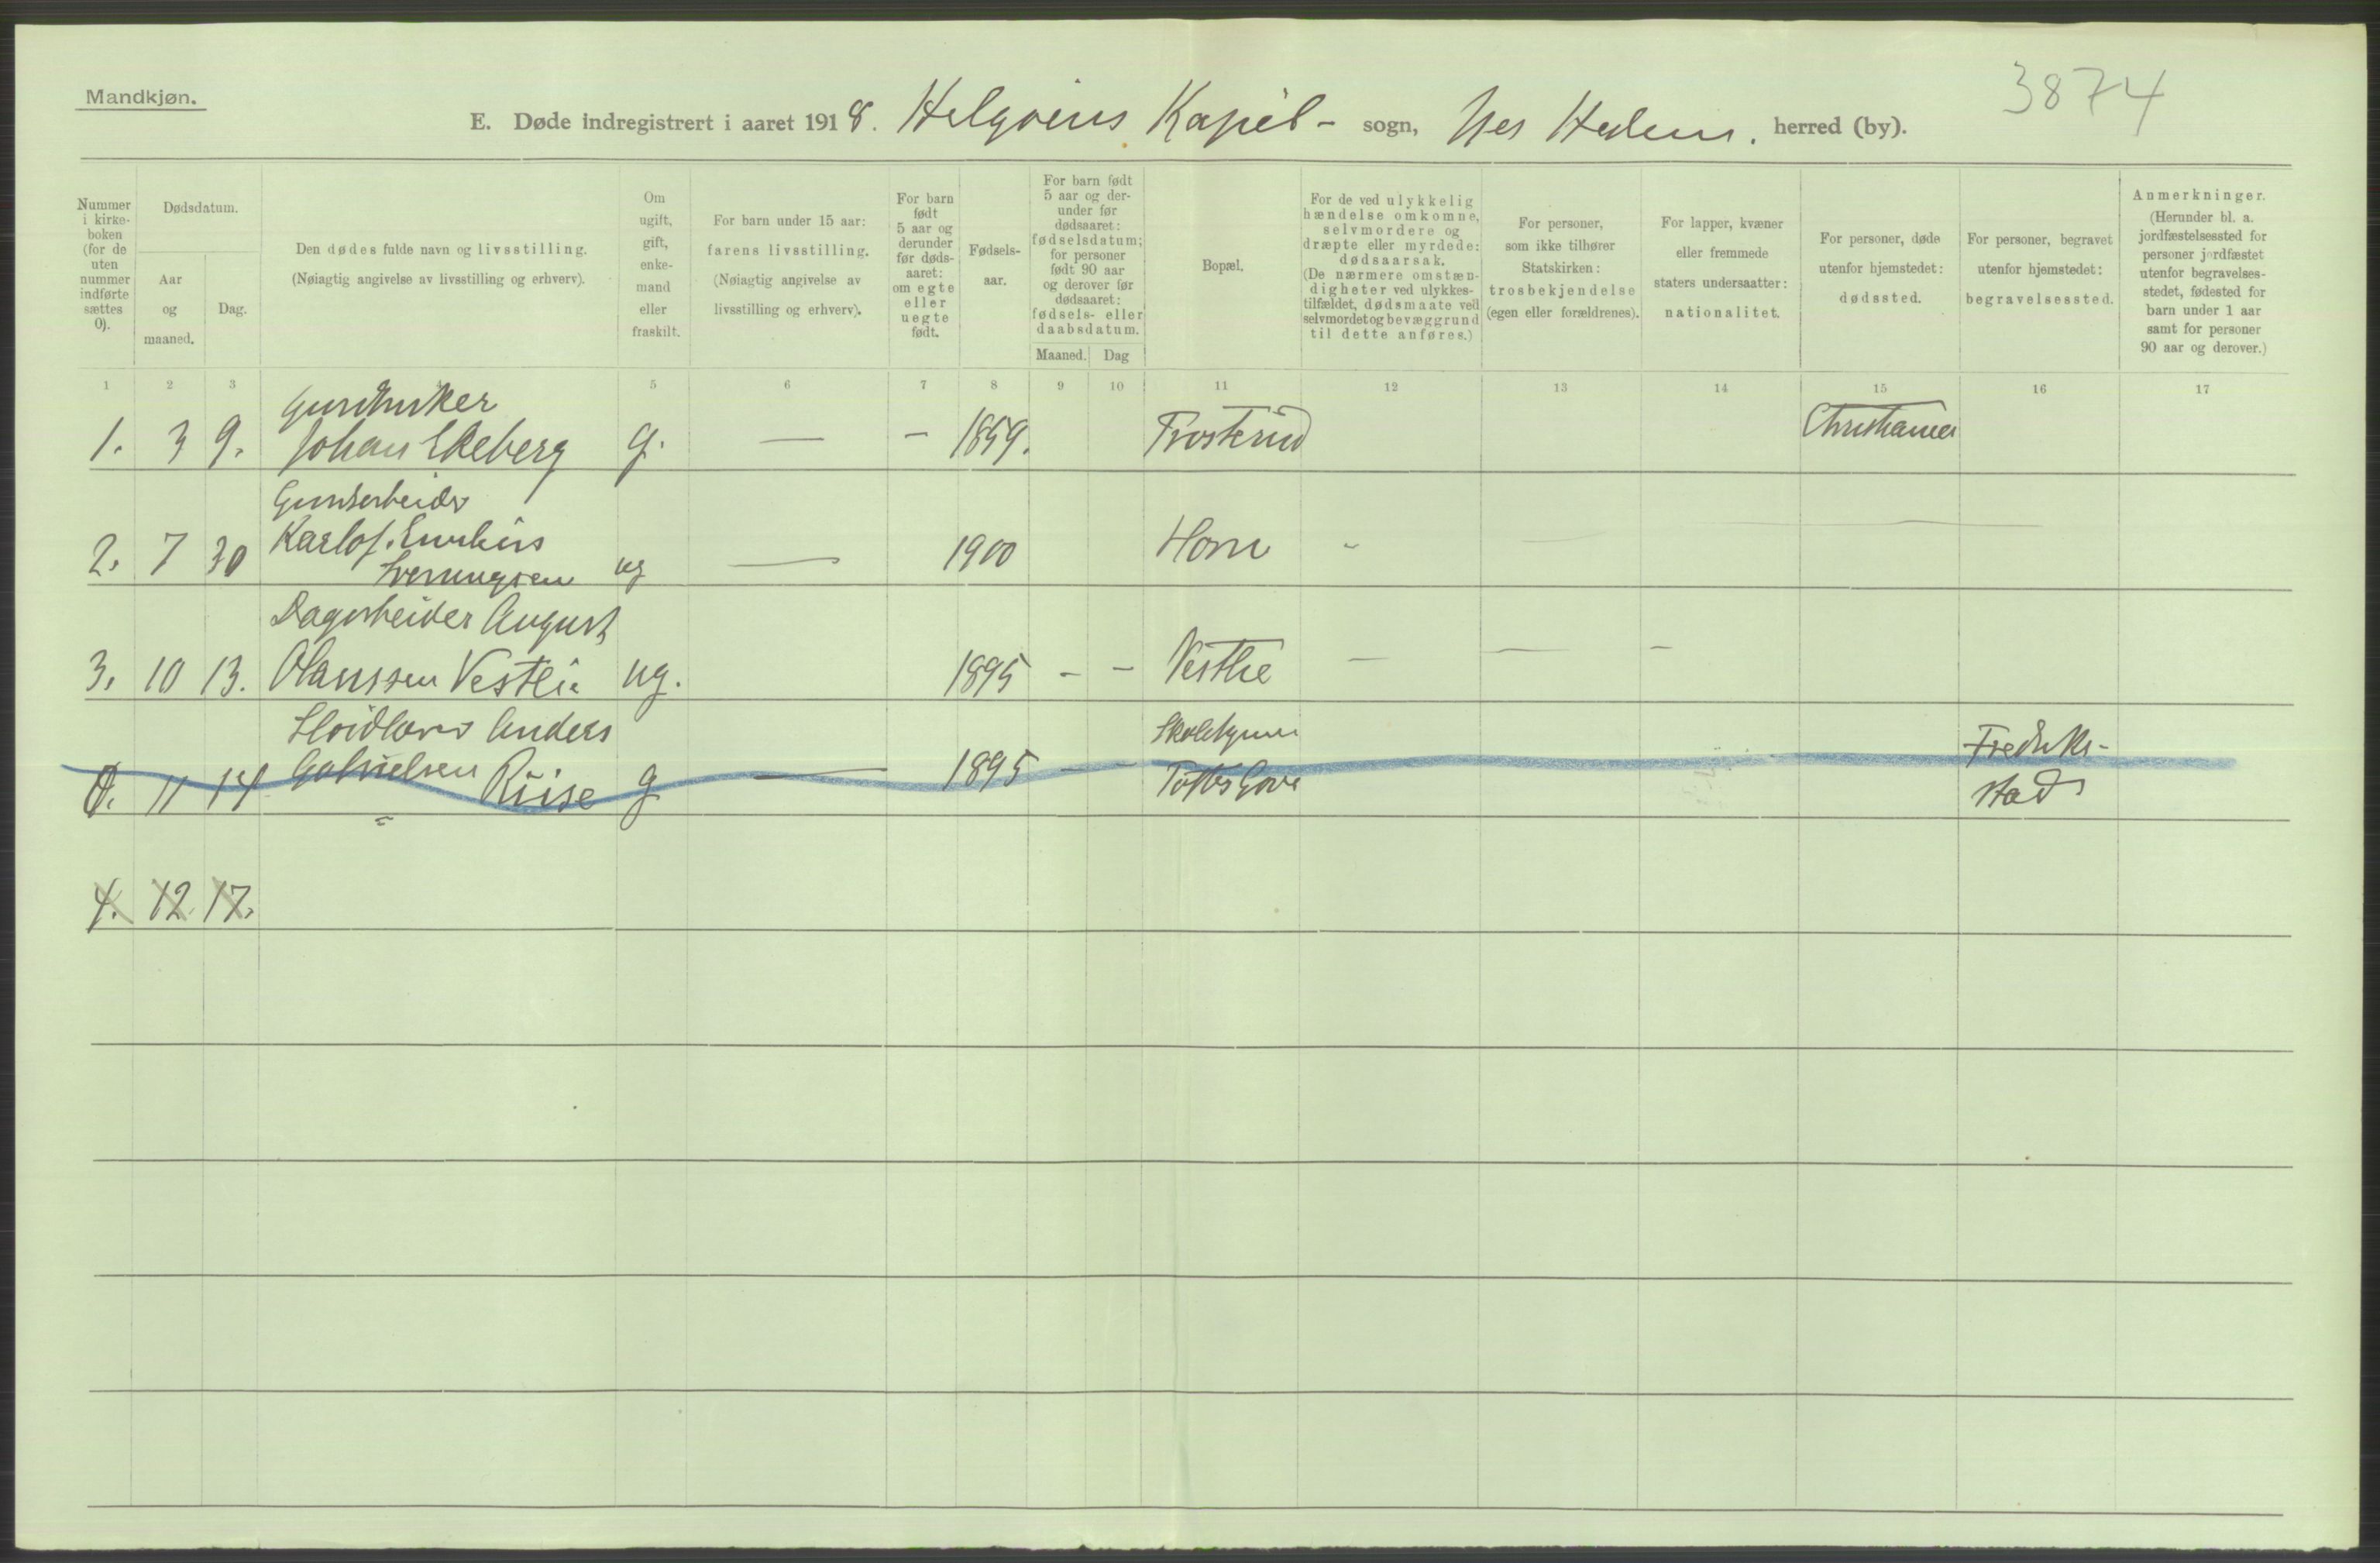 Mandkjøn.
3874
E. Døde indregistrert i aaret 1918. Helgøens Kapel- sogn, Nes Hedem. herred (by).
Nummer
i kirke-
boken
(for de
uten
nummer
indførte
sættes
0).
Dødsdatum.
Aar
og
maaned.
Dag.
Den dødes fulde navn og livsstilling.
(Nøiagtig angivelse av livsstilling og erhverv).
Om
ugift,
gift,
enke-
mand
eller
fraskilt.
For barn under 15 aar:
farens livsstilling.
(Nøiagtig angivelse av
livsstilling og erhverv).
For barn
født
5 aar og
derunder
før døds-
aaret:
om egte
eller
uegte
født.
Fødsels-
aar.
For barn født
5 aar og der-
under før
dødsaaret:
fødselsdatum;
for personer
født 90 aar
og derover før
dødsaaret:
fødsels- eller
daabsdatum.
Maaned. Dag
Bopæl.
For de ved ulykkelig
hændelse omkomne,
selvmordere og
dræpte eller myrdede:
dødsaarsak.
(De nærmere omstæn-
digheter ved ulykkes-
tilfældet, dødsmaate ved
selvmordet og bevæggrund
til dette anføres.)
For personer,
som ikke tilhører
Statskirken:
trosbekjendelse
(egen eller forældrenes).
For lapper, kvæner
eller fremmede
staters undersaatter:
nationalitet.
For personer, døde
utenfor hjemstedet:
dødssted.
For personer, begravet
utenfor hjemstedet:
begravelsessted.
Anmerkninger.
(Herunder bl. a.
jordfæstelsessted for
personer jordfæstet
utenfor begravelses-
stedet, fødested for
barn under 1 aar
samt for personer
90 aar og derover.)
1 2 3 5 6 7 8 9 10 11 12 13 14 15 16 17
Gurdbruker
1. 3 9. Johan Ekeberg g. — – 1859. Frosterud Christiania
Gurdsarbeider
Karlof.
2. 7 30 ug — 1900 Horn -
Dagarbeider August
3. 10 13. Olaussen Vestlie ug. 1895 - - Vestlie — — –
Anders
Gabrielsen
0. 11 14 Riise g — 1895 – – Fredriks-
stad
4. 12 17.